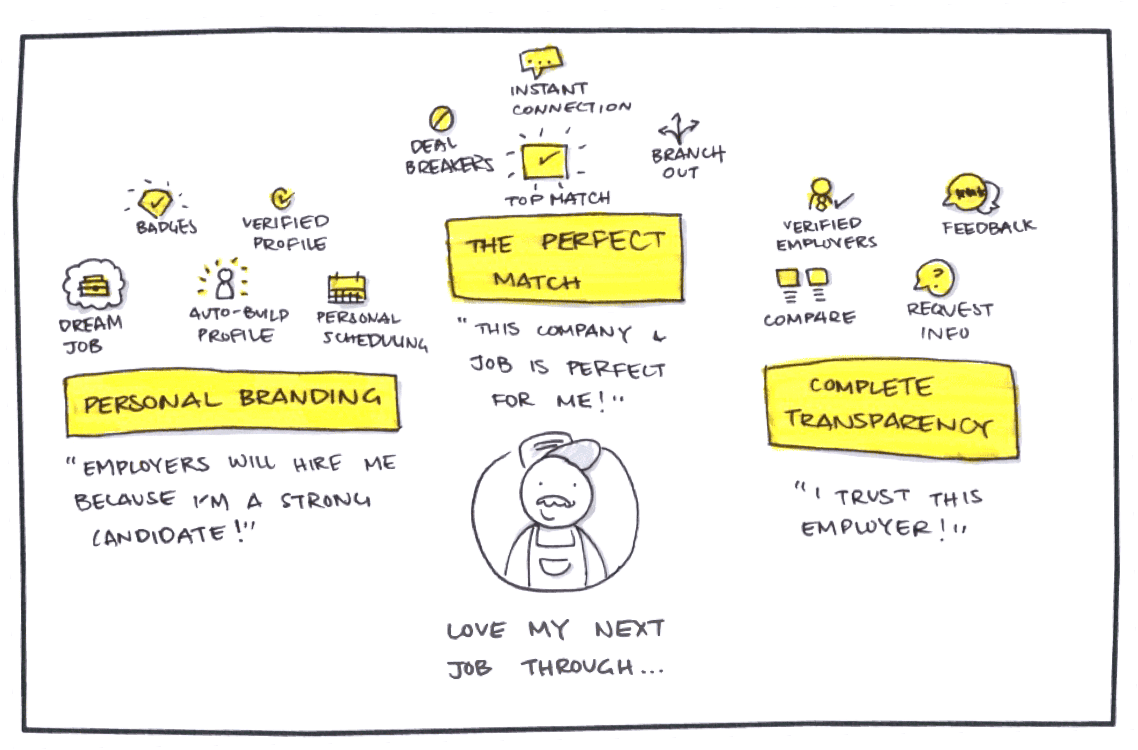 INSTANT
CONNECTION
DEAL
BREAKERS
BRANCH
OUT
TOP MATCH
THE PERFECT
MATCH
"THIS COMPANY &
JOB IS PERFECT
FOR ME!"
BADGES
VERIFIED
PROFILE
DREAM
JOB
AUTO-BUILD
PROFILE
PERSONAL
SCHEDULING
PERSONAL BRANDING
"EMPLOYERS WILL HIRE ME
BECAUSE I'M A STRONG
CANDIDATE!"
VERIFIED
EMPLOYERS
FEEDBACK
COMPARE
REQUEST
INFO
COMPLETE
TRANSPARENCY
"I TRUST THIS
EMPLOYER!"
LOVE MY NEXT
JOB THROUGH...